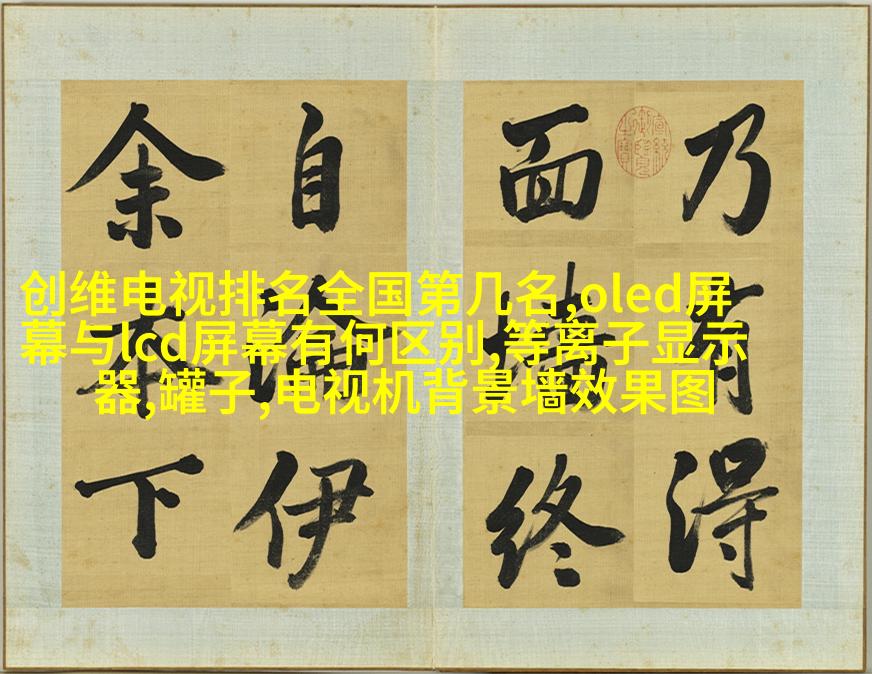 创维电视排名全国第几名,oled屏
幕与lcd屏幕有何区别,等离子显示
器,罐子,电视机背景墙效果图
乃有得
面终
自伊
余不下